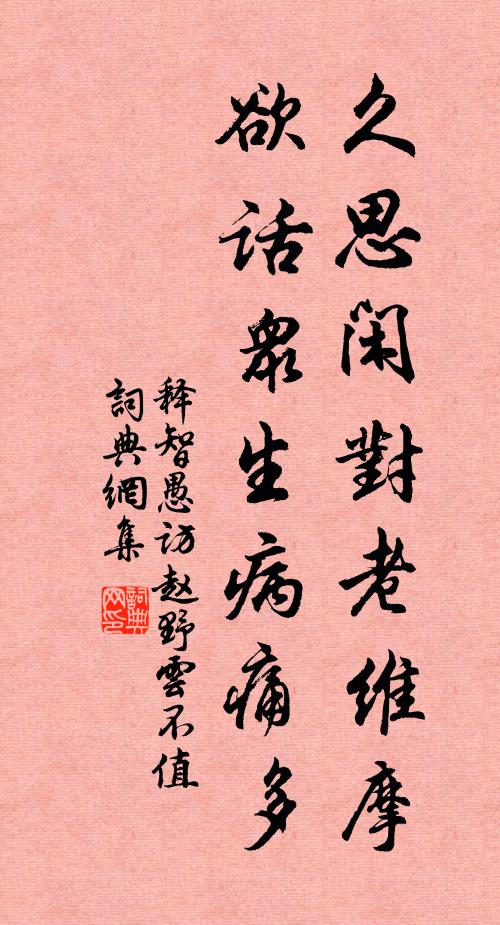 久思閑對老維摩
欲话眾生病痛多
释智愚访赵野雲不值
詞典網集
詞典网印